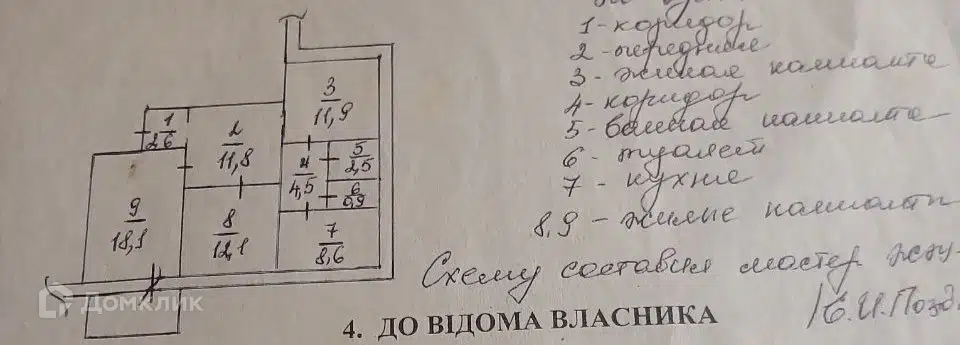 1 - коридор
2 - передняя
3 - жилая комната
4 - коридор
5 - ванная комната
6 - туалет
7 - кухня
8,9 - жилые комнаты
Схему составил мастер
/Е.И.Позд.
3
11,9
1
2,6
2
11,8
4
4,5
5
2,5
6
0,9
9
18,1
8
12,1
7
8,6
Домклик
4. ДО ВІДОМА ВЛАСНИКА